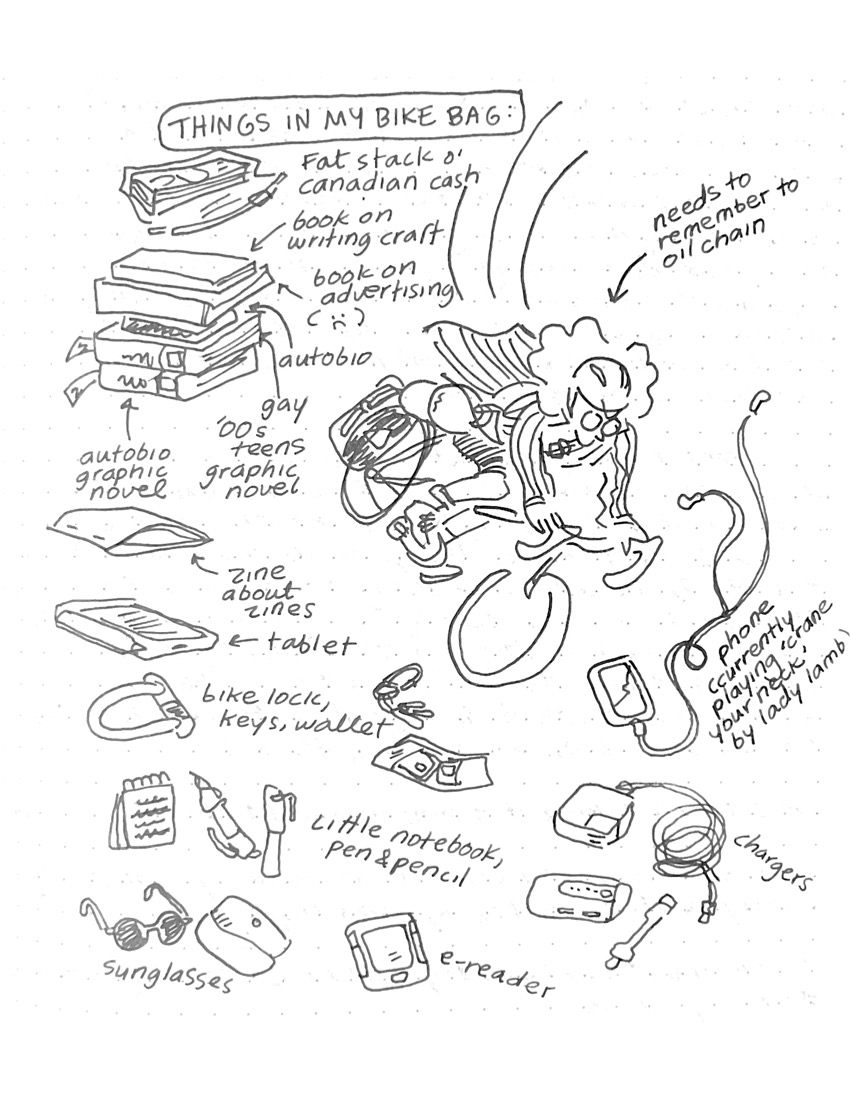 THINGS IN MY BIKE BAG:
Fat stack o'
canadian cash
book on
writing craft
book on
advertising
( :( )
autobio
gay
'00s
teens
graphic
novel
autobio
graphic
novel
zine
about
zines
tablet
bike lock,
keys, wallet
Little notebook,
pen & pencil
sunglasses
e-reader
chargers
needs to
remember to
oil chain
phone
(currently
playing 'crane
your neck'
by lady lamb)